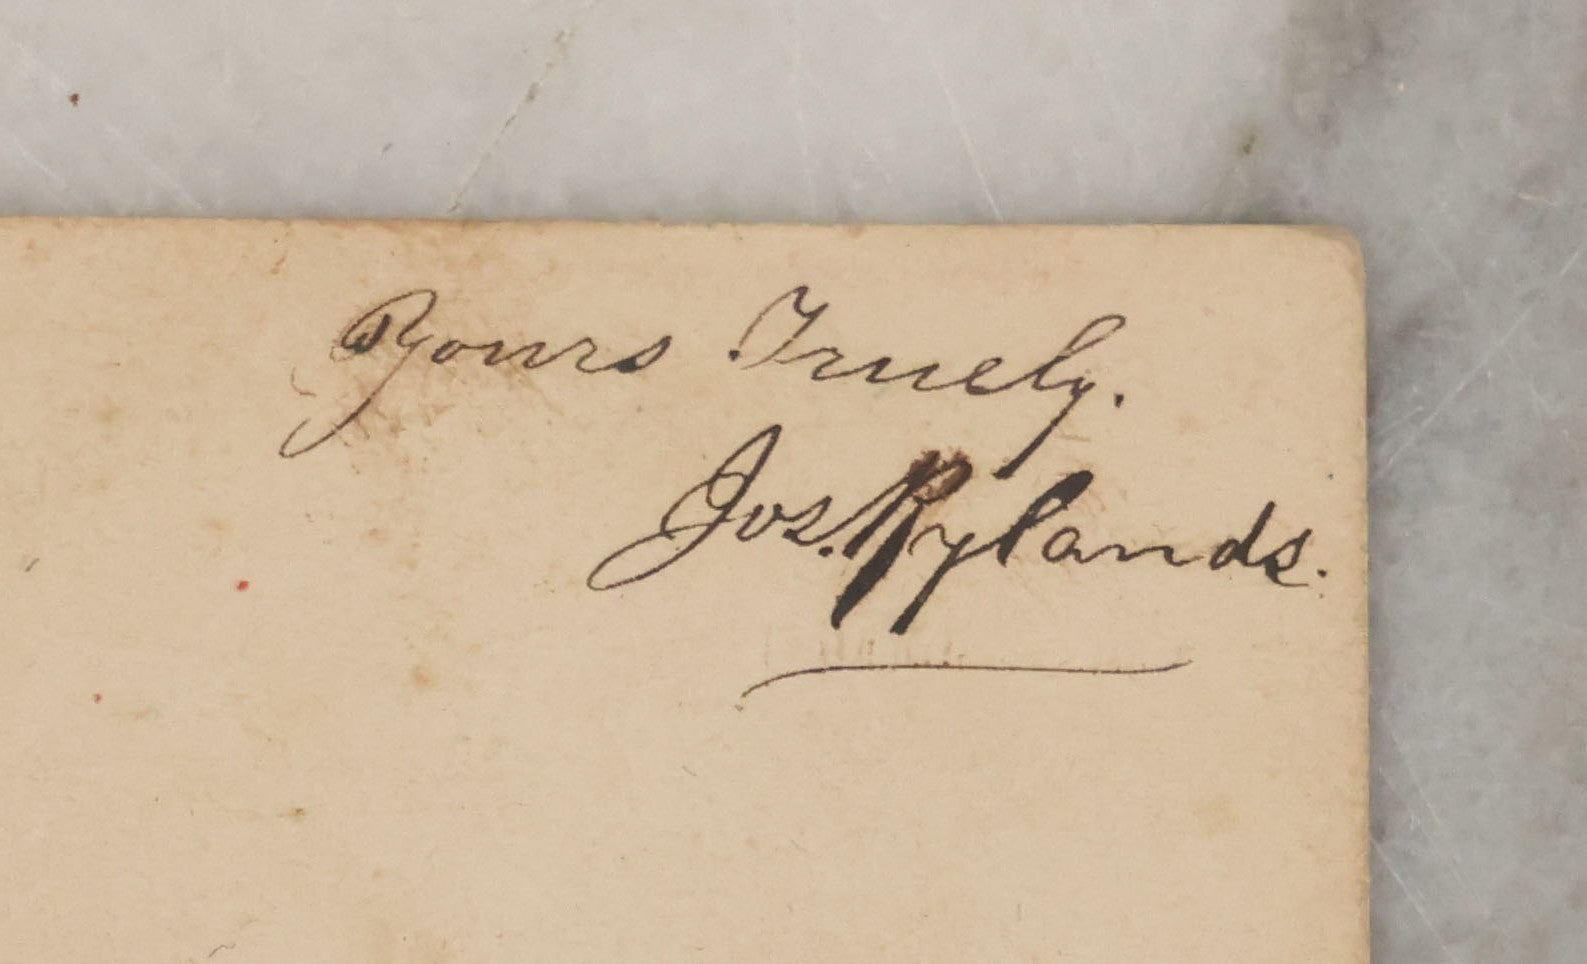 Yours Truely.
Jos. Rylands.